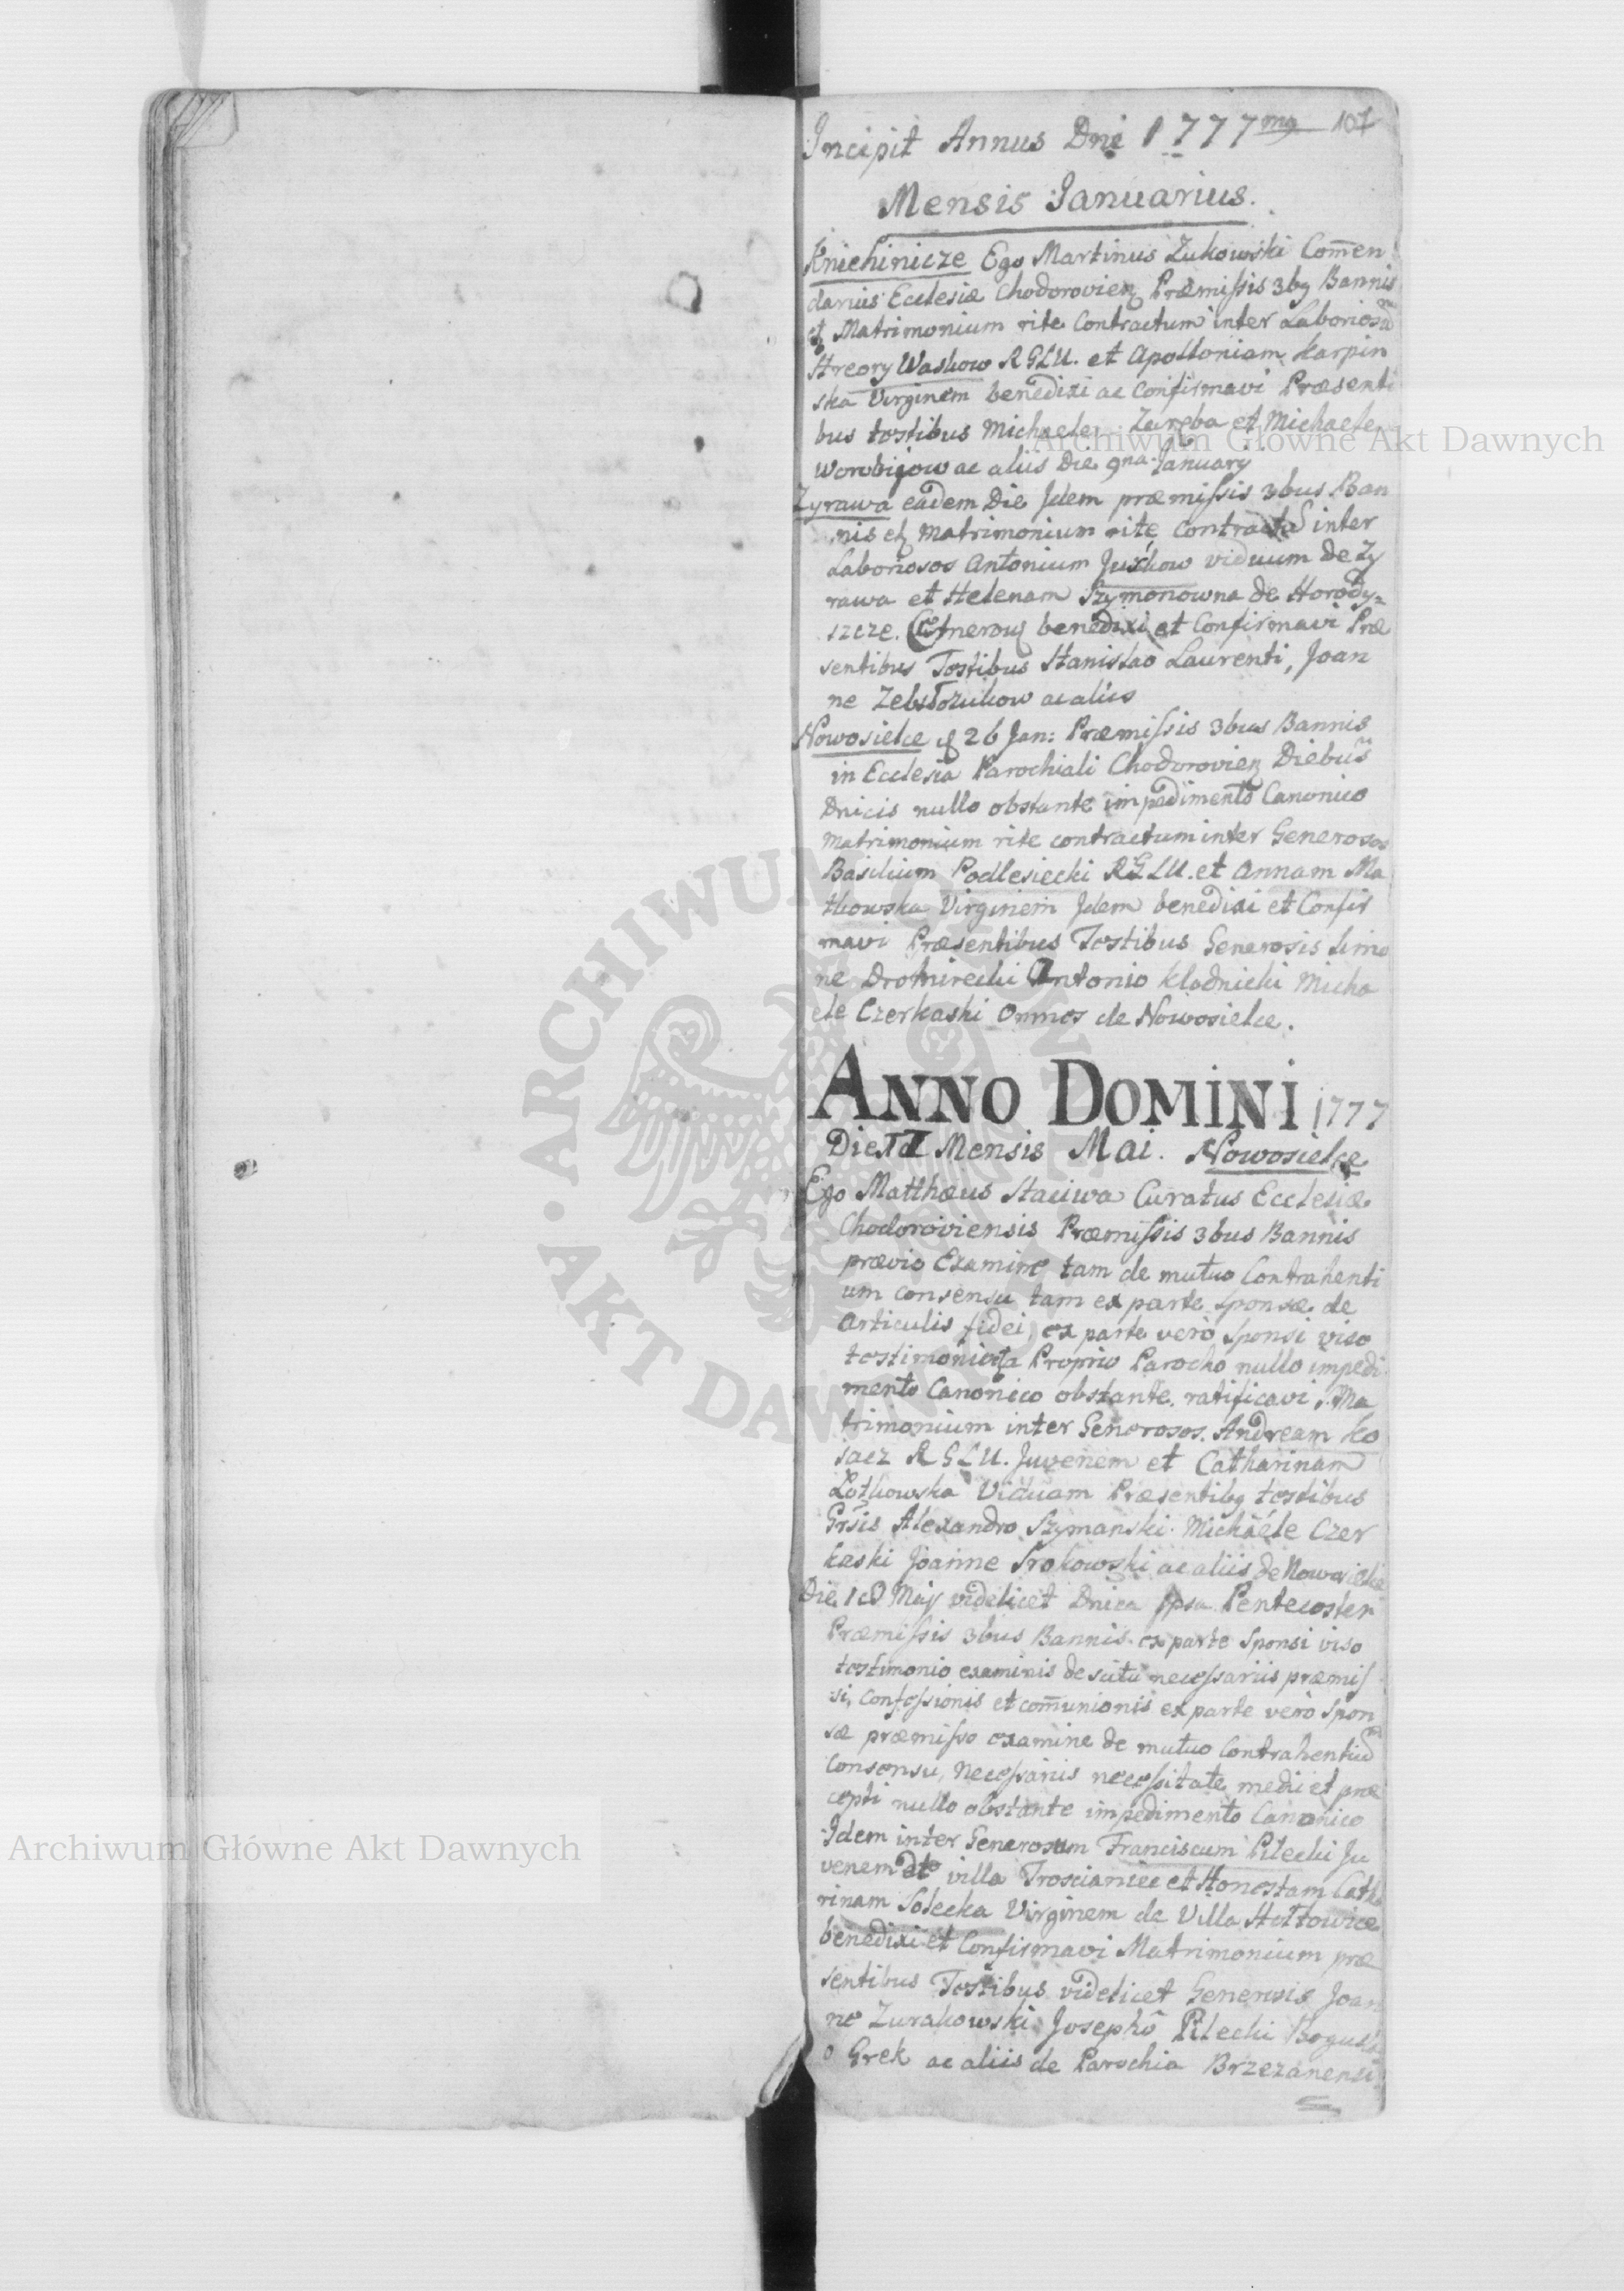 Incipit Annus Dni 1777mg 107
Mensis Januarius.
Kniehinicze Ego Martinus Zukowski Com̅en
darius Ecclesiæ Chodorovien Præmissis 3bq Bannis
Matrimonium rite Contractum inter Laborios
Hreory Waskow RGLU. et Apolloniam Karpin
ska Virginem benedixi ac Confirmavi Præsenti
bus testibus Michaele Zareba et Michaele
Worobijow ac aliis Die 9na January
Zyrawa eadem Die Idem præmissis 3bus Ban
nis Matrimonium rite Contractu inter
Laboriosos Antonium Juskow viduum de Zy
rawa et Helenam Szymonowna de Horody=
szcze. benedixi et Confirmavi Præ
sentibus Testibus Stanislao Laurenti, Joan
ne ac aliis
Nowosielce 26 Jan: Præmissis 3bus Bannis
in Ecclesia Parochiali Chodorovien Diebus
Dnicis nullo obstante impedimento Canonico
Matrimonium rite contractum inter Generosos
Basilium Podlesiecki RGLU. et Annam Ma
tkowska Virginem Idem benedixi et Confir
mavi Præsentibus Testibus Generosis Simo
ne Dromirecki Antonio Kłodnicki Micha
ele Czerkaski Omnes de Nowosielce.
ANNO DOMINI 1777
Die Mensis Mai. Nowosielce
Ego Matthæus Staciwa Curatus Ecclesiæ
Chodoroviensis Præmissis 3bus Bannis
prævio Examine tam de mutuo Contrahenti
um consensu tam ex parte Sponsæ de
Articulis fidei, ex parte verò Sponsi viso
testimonio a Proprio Parocho nullo impedi
mento Canonico obstante ratificavi Ma
trimonium inter Generosos Andream Ko
sacz RGLU. Juvenem et Catharinam
Lotkowska Viduam Præsentibq testibus
Grsis Alexandro Szymanski Michaele Czer
kaski Joanne Srokowski ac aliis de Nowosielce
Die 18 Maij videlicet Dnica ipsa Pentecosten
Præmissis 3bus Bannis ex parte Sponsi viso
testimonio examinis de scitu necessariis præmis
si, Confessionis et com̅unionis ex parte verò Spon
sæ præmisso examine de mutuo Contrahentium
Consensu, Necessariis necessitate medii et præ
cepti nullo obstante impedimento Canonico
Idem inter Generosum Franciscum Pilecki Ju
venem de villa Trosciamiec et Honestam Catha
rinam Solecka Virginem de Villa Hołtowice
benedixi et Confirmavi Matrimonium præ
sentibus Testibus videlicet Generosis Joan
ne Zurakowski Josepho Pilecki Bogusla
o Grek ac aliis de Parochia Brzezanensi
Archiwum Główne Akt Dawnych
Archiwum Główne Akt Dawnych